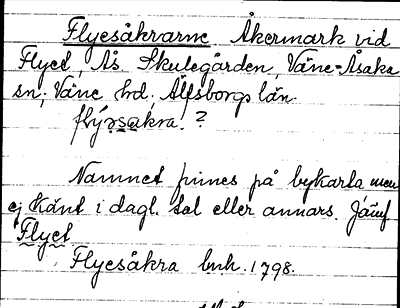 Flyesåkrarne Åkermark vid
Flyet, Ås Skulegården, Väne-Åsaka
sn; Väne hd. Älfsborgs län.
flýəsakra. ?
Namnet finnes på bykarta men
ej känt i dagl. tal eller annars. Jämf.
Flyet
Flyesåkra lmh. 1798.